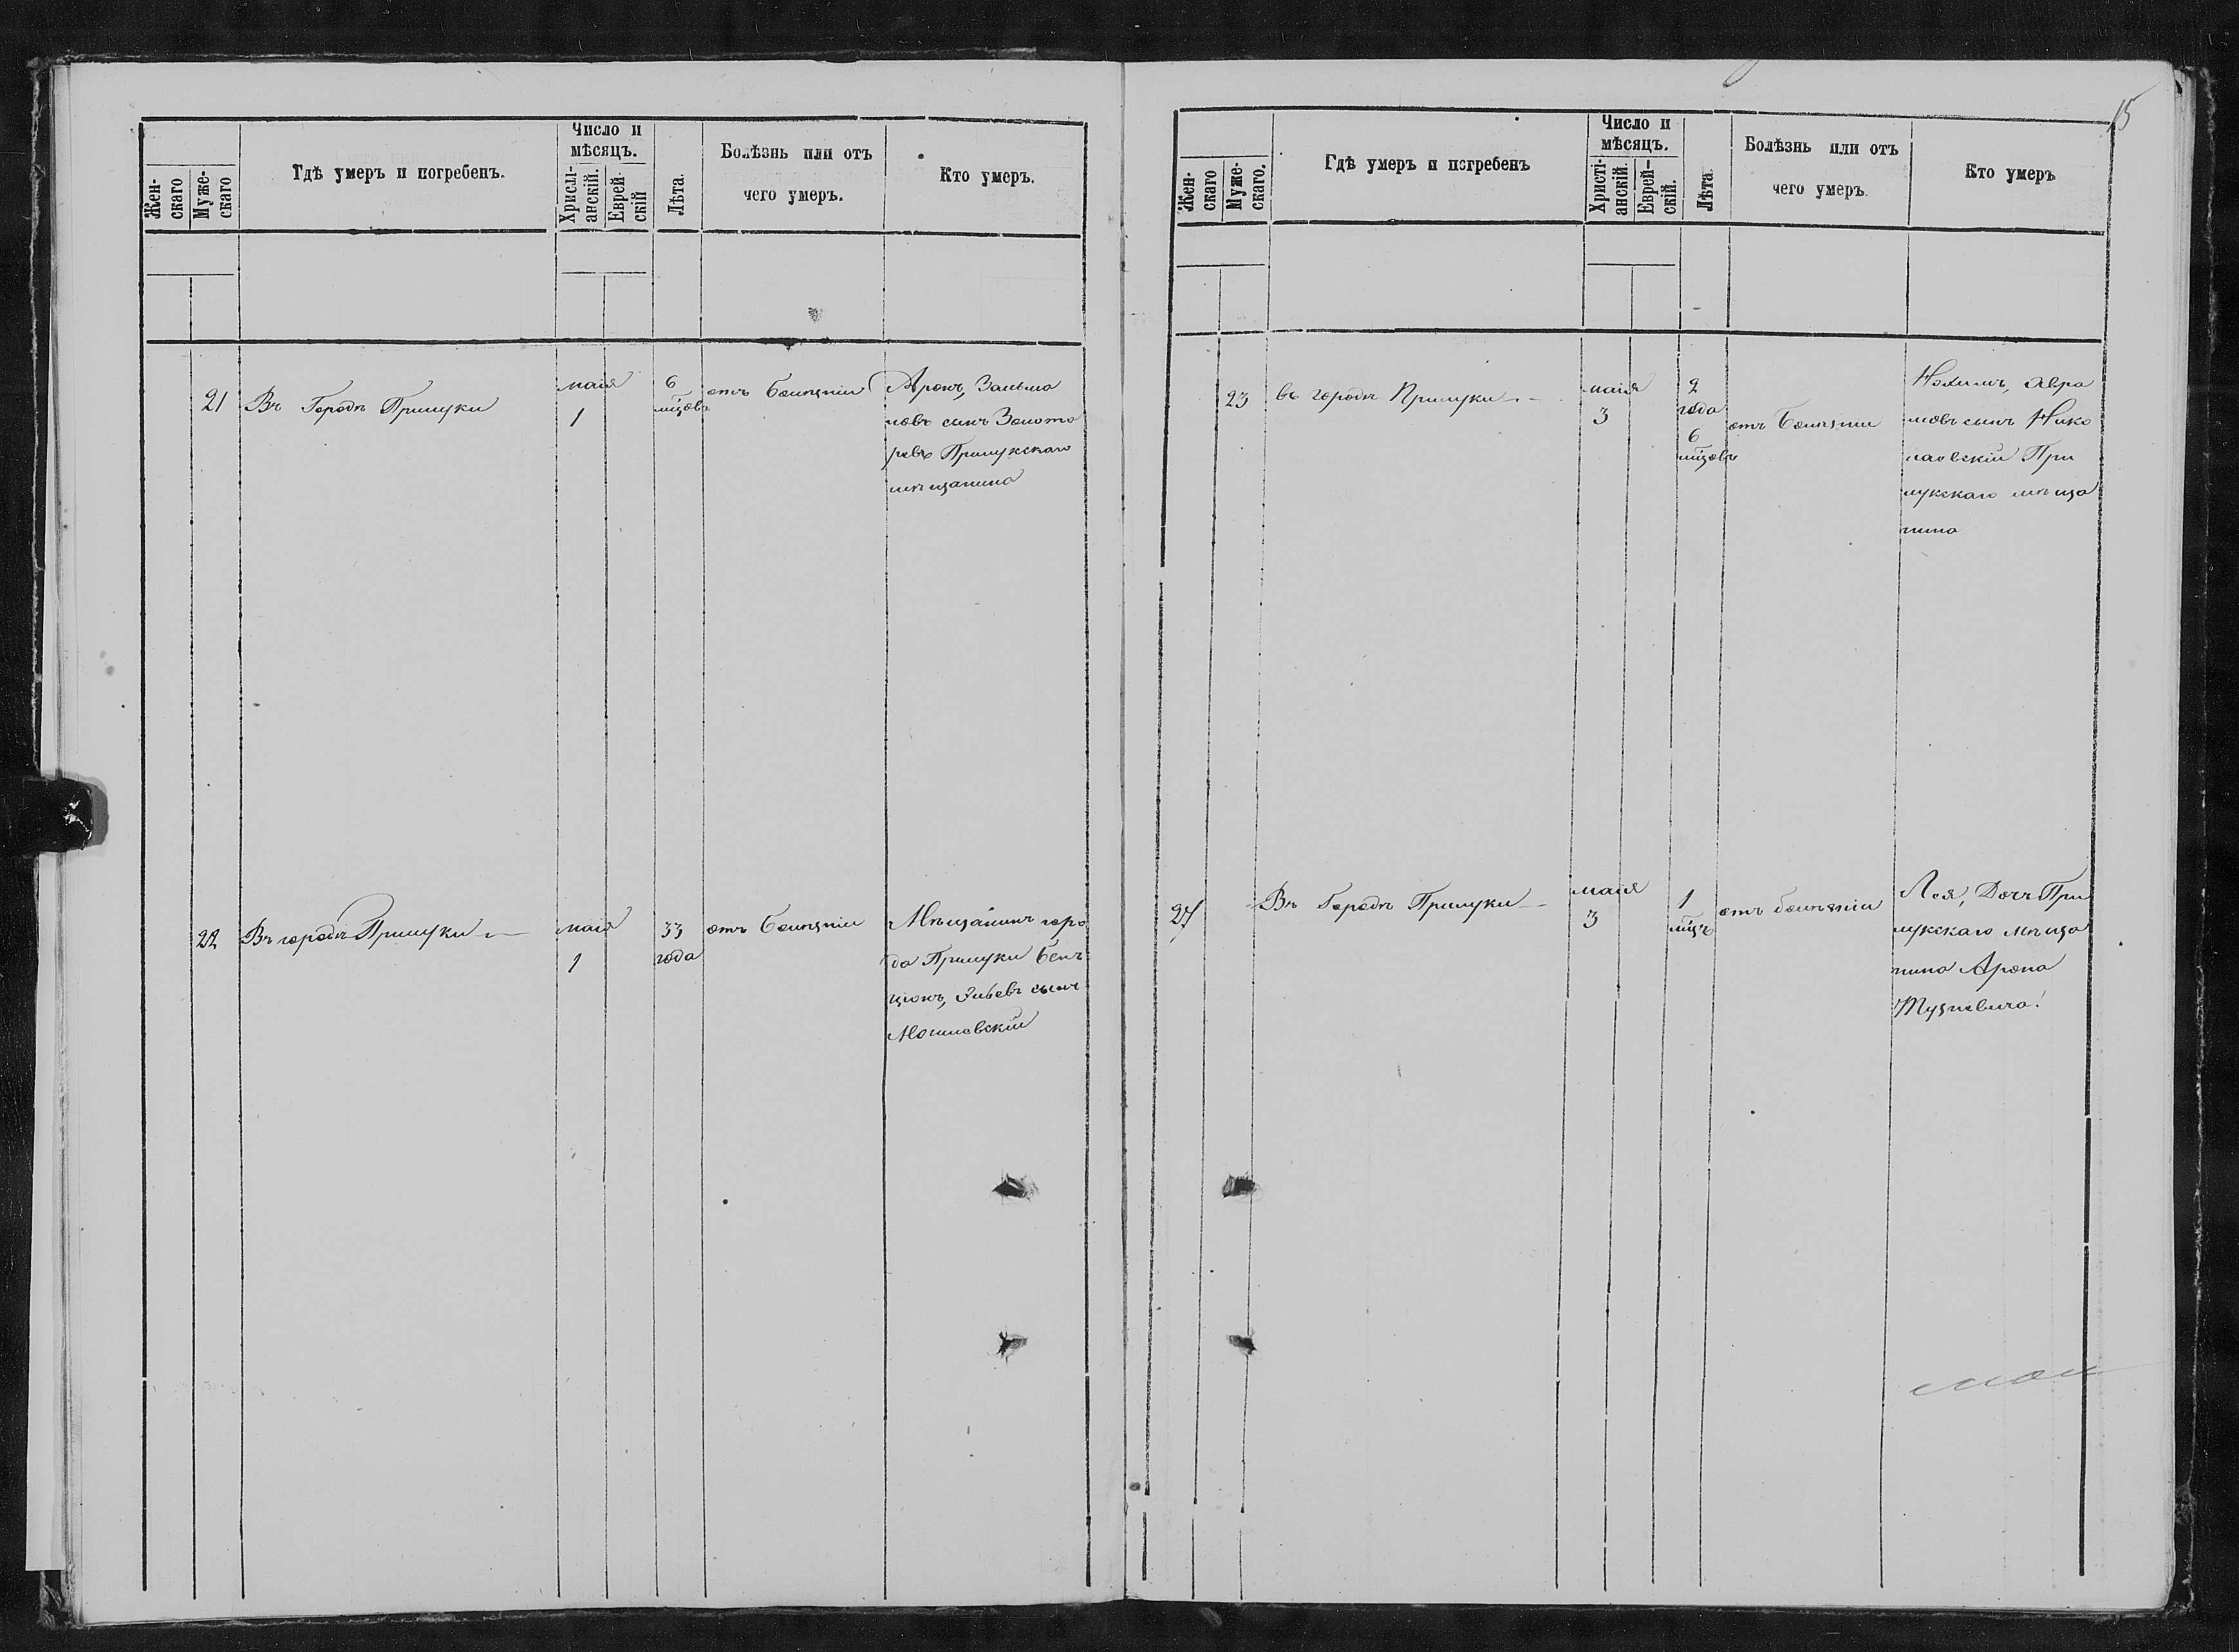 Жен-
скаго
Муже-
скаго
Гдѣ умеръ и погребенъ.
Число и
мѣсяцъ.
Христі-
анскій.
Еврей-
скій
Лѣта.
Болѣзнь или отъ
чего умеръ.
Кто умеръ.
21
Въ Городѣ Прилуки
маія
1
6
мѣсцовъ
отъ болѣзни
Аронъ, Залма
новъ сынъ Золото
ревъ Прилукскаго
мѣщанина
22
Въ городѣ Прилуки
маія
1
33
года
отъ болѣзни
Мѣщанинъ горо
да Прилуки Бенъ
ціонъ, сынъ
Могилевскій
15
Жен-
скаго
Муже-
скаго.
Гдѣ умеръ и погребенъ
Число и
мѣсяцъ.
Христі-
анскій.
Еврей-
скій.
Лѣта.
Болѣзнь или отъ
чего умеръ.
Кто умеръ
23
въ городѣ Прилуки
маія
3
2
года
6
мѣсцовъ
отъ болѣзни
Нохимъ, Авра
мовъ сынъ Нико
лаевскій При
лукскаго мѣща
нина
27
Въ Городѣ Прилуки
маія
3
1
мѣсцъ
отъ болѣзни
Лея, Дочь При
лукскаго мѣща
нина Арона